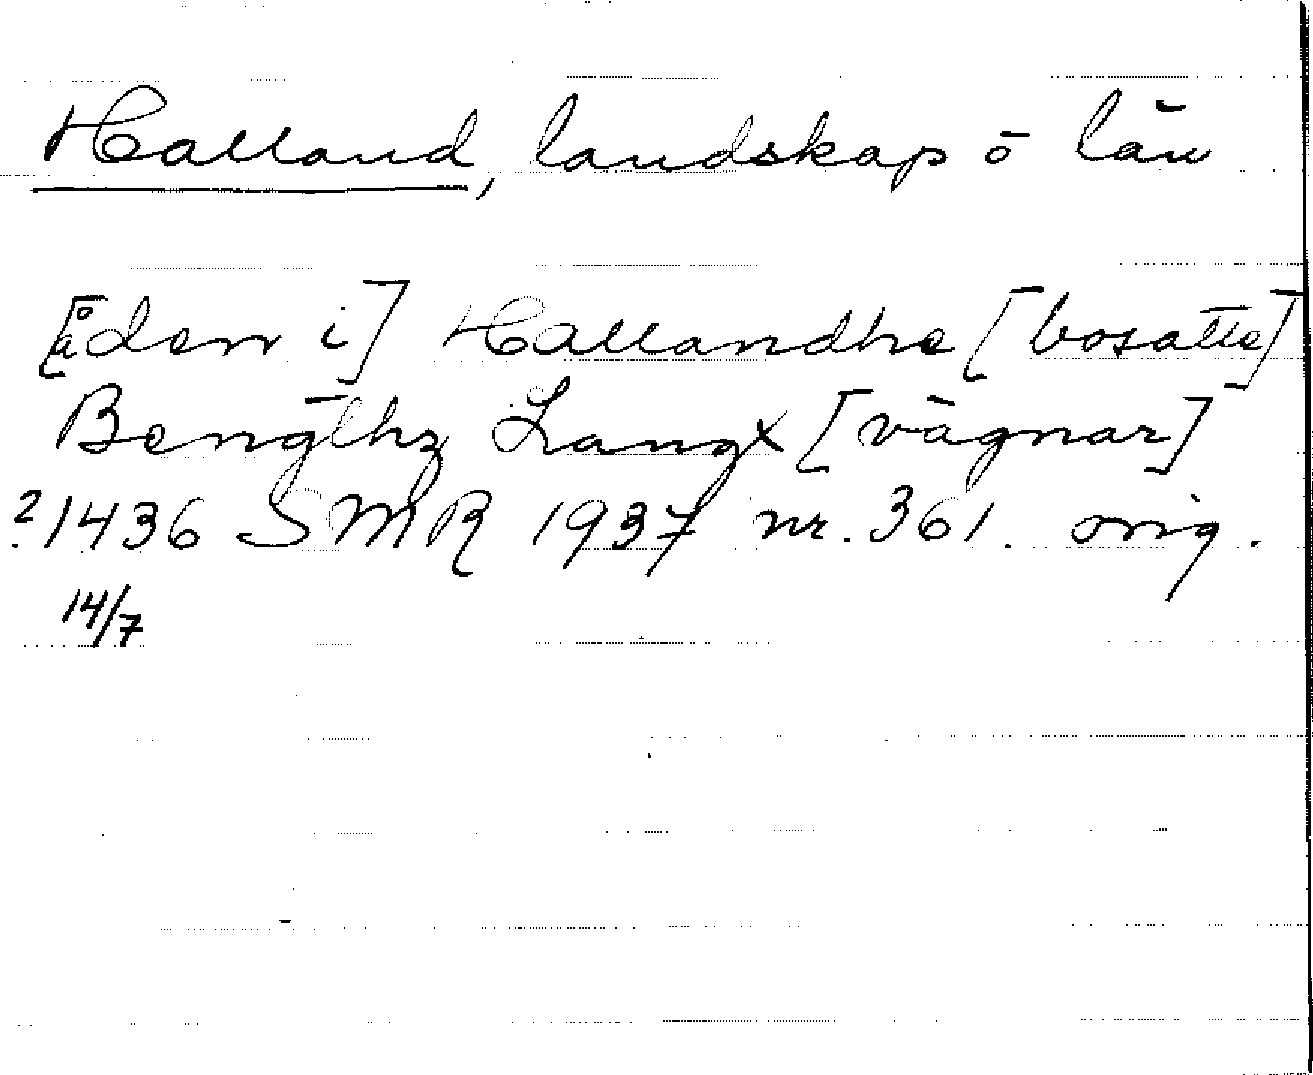 Halland, landskap ö län
[å den i] Hallandhe [bosatte]
Bengthz Langx [vägnar]
?1436 SMR 1937 nr. 361. orig.
14/7